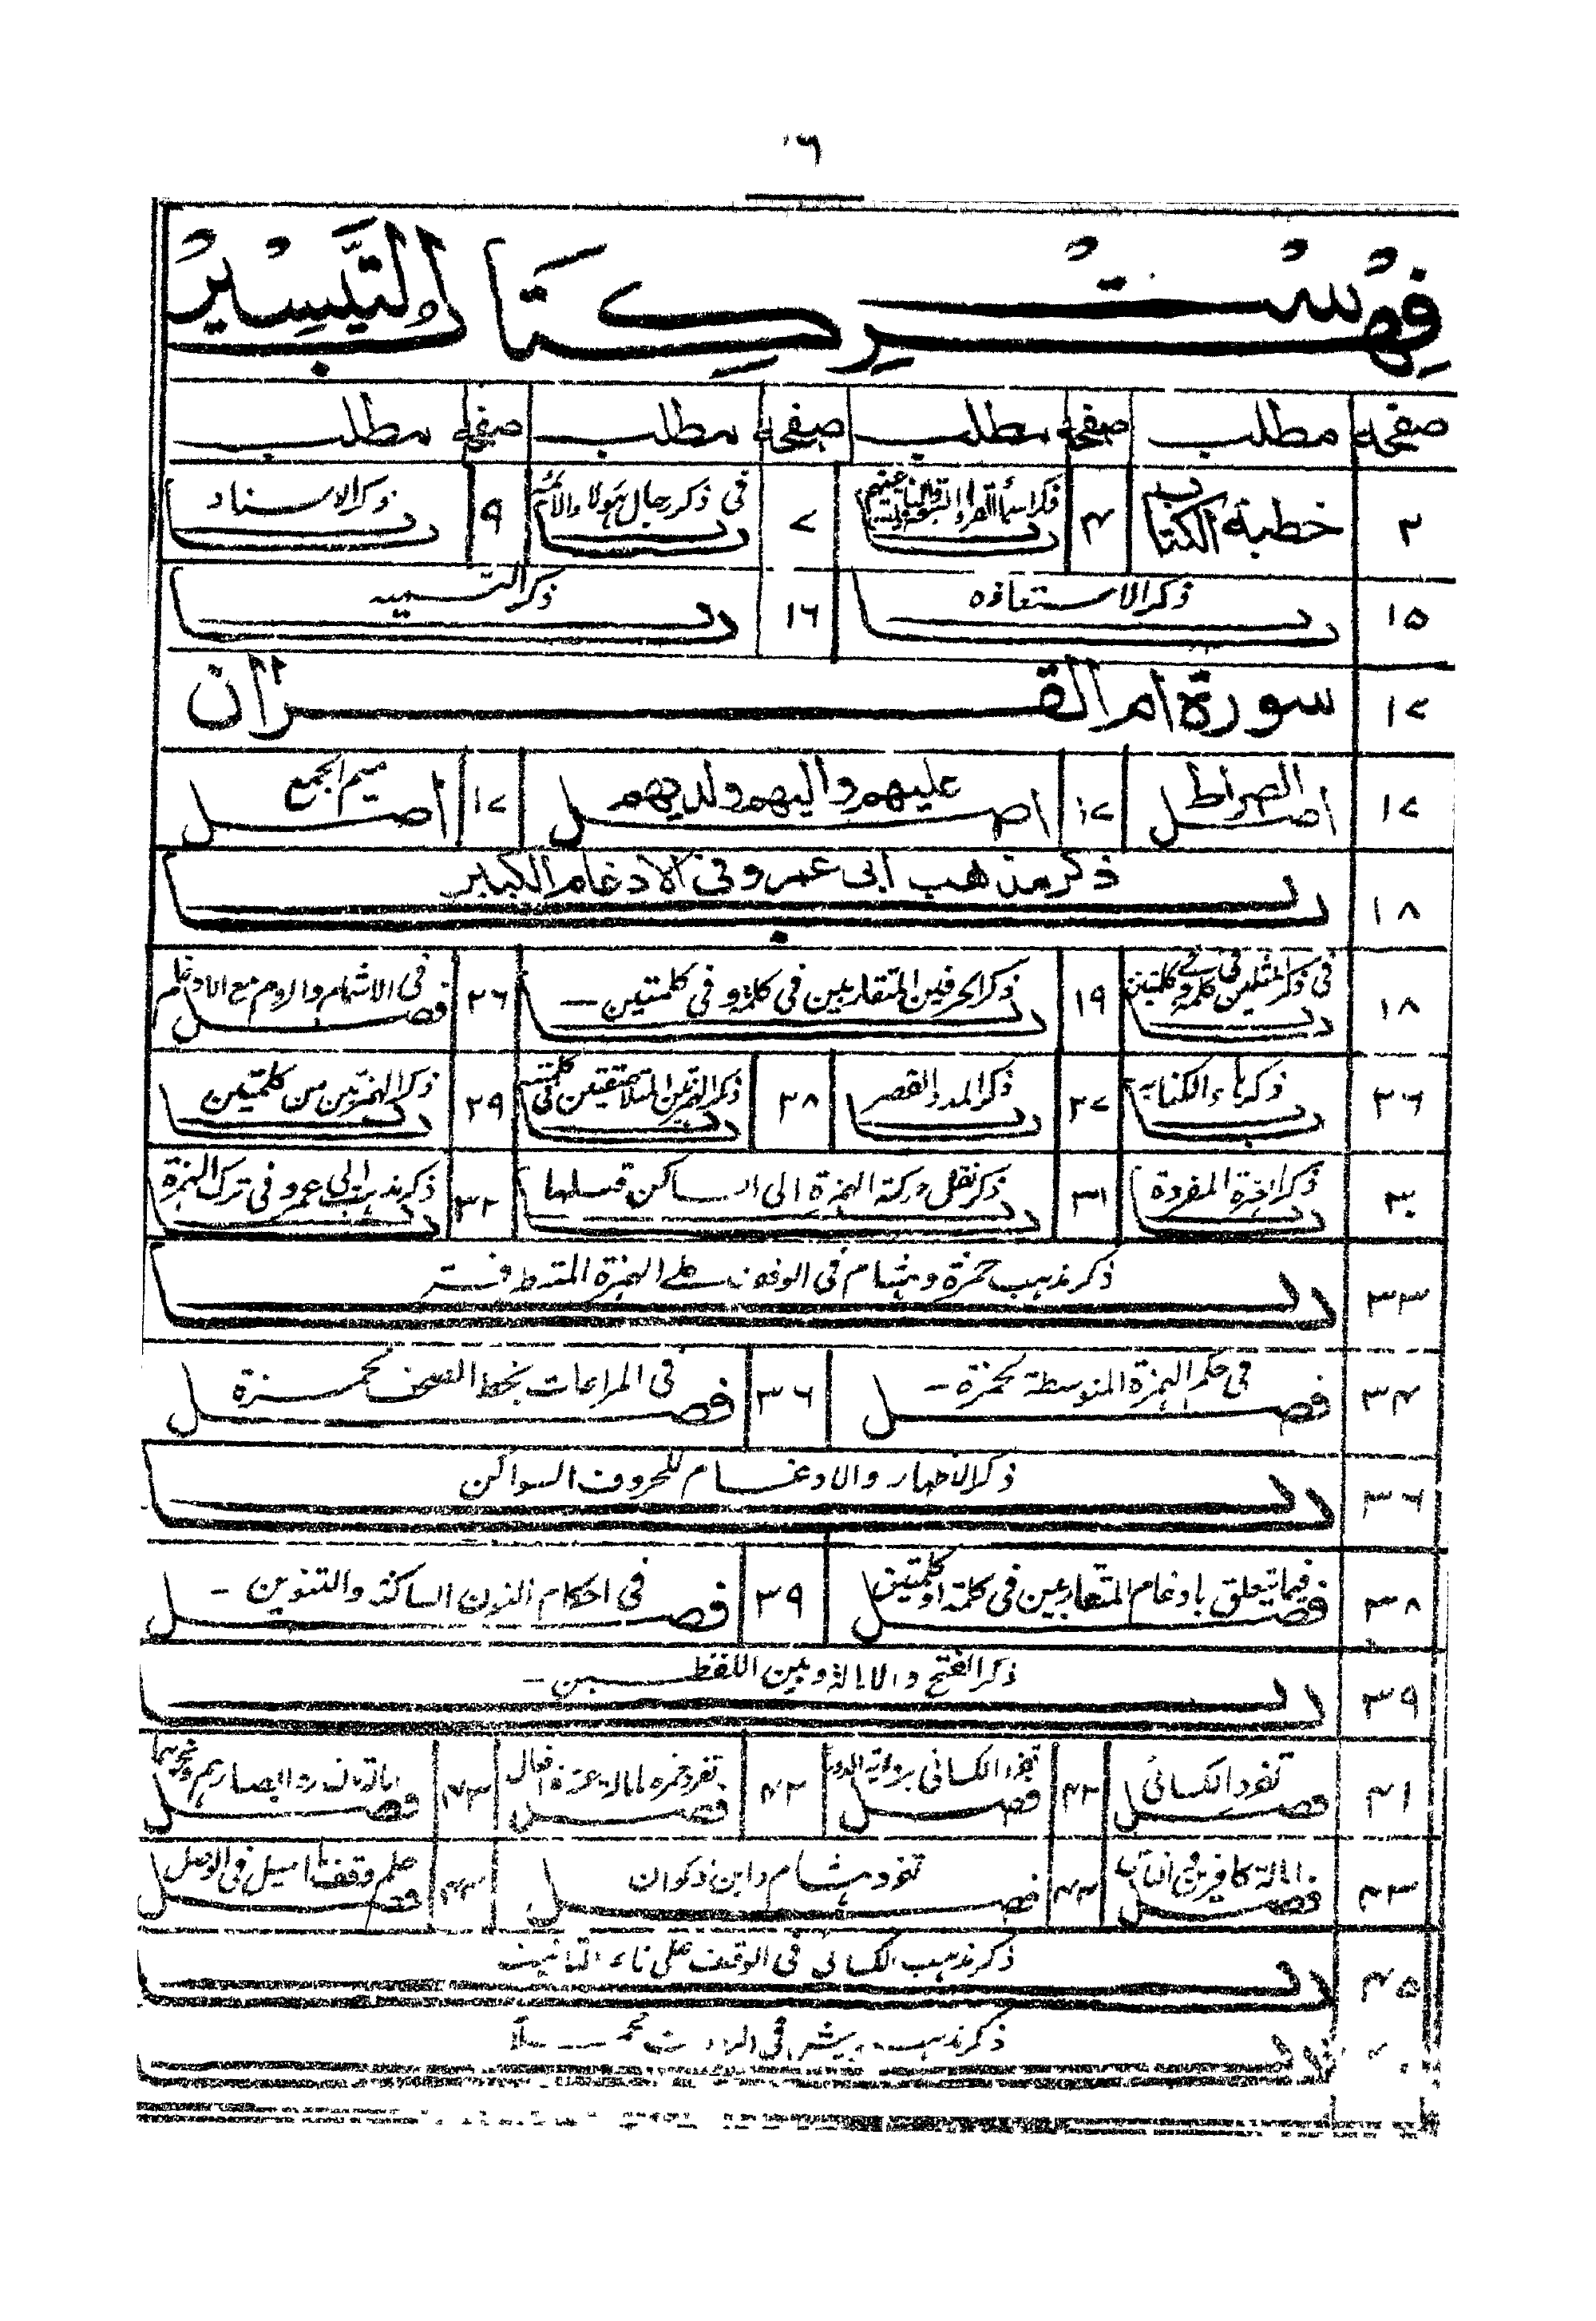 ٦
فِهْرِسْتُ كِتَابِ التَّيْسِيْرْ
صفحه مطلب صفحه مطلب صفحه مطلب صفحه مطلب
٢ خطبة الكتاب ٤ باب ذكر اسماء القراء ٧ باب فى ذكر رجال هؤلاء الائمة ٩ باب ذكر الاسناد
١٥ باب ذكر الاستعاذه ١٦ باب ذكر التسميه
١٧ سورة ام القرآن
١٧ اصل الصراط ١٧ اصل عليهم واليهم ولديهم ١٧ اصل ميم الجمع
١٨ باب ذكر مذهب ابى عمرو فى الادغام الكبير
١٨ باب فى ذكر المثلين فى كلمة وفى كلمتين ١٩ باب ذكر الحرفين المتقاربين فى كلمة وفى كلمتين - ٢٦ فصل فى الاشمام والروم مع الادغام
٢٦ باب ذكر هاء الكنايه ٢٧ باب ذكر المد والقصر ٢٨ باب ذكر الهمزتين المتلاصقتين فى كلمته ٢٩ باب ذكر الهمزتين من كلمتين
٣٠ باب ذكر الهمزة المفردة ٣١ باب ذكر نقل حركة الهمزة الى الساكن قبلها ٣٢ باب ذكر مذهب ابى عمرو فى ترك الهمزة
٣٣ باب ذكر مذهب حمزة وهشام فى الوقف على الهمزة المتطرفة
٣٤ فصل فى حكم الهمزة المتوسطة لحمزة - ٣٦ فصل فى المراعات بخط المصحف لحمزة
٣٦ باب ذكر الاظهار والادغام للحروف السواكن
٣٨ فصل فيما يتعلق بادغام المتقاربين فى كلمة او كلمتين ٣٩ فصل فى احكام النون الساكنة والتنوين -
٣٩ باب ذكر الفتح والامالة وبين اللفظين -
٤١ فصل تفرد الكسائى ٤٢ فصل تفرد الكسائى برواية الدورى ٤٢ فصل تفرد حمزه بامالة عشرة افعال ٤٣ فصل امالة ابصارهم ونحوهما
٤٣ فصل امالة كافرين ٤٣ فصل تفرد هشام وابن ذكوان ٤٣ فصل حكم وقف ما اميل فى الوصل
٤٥ باب ذكر مذهب الكسائى فى الوقف على تاء التانيث
باب ذكر مذهب فى